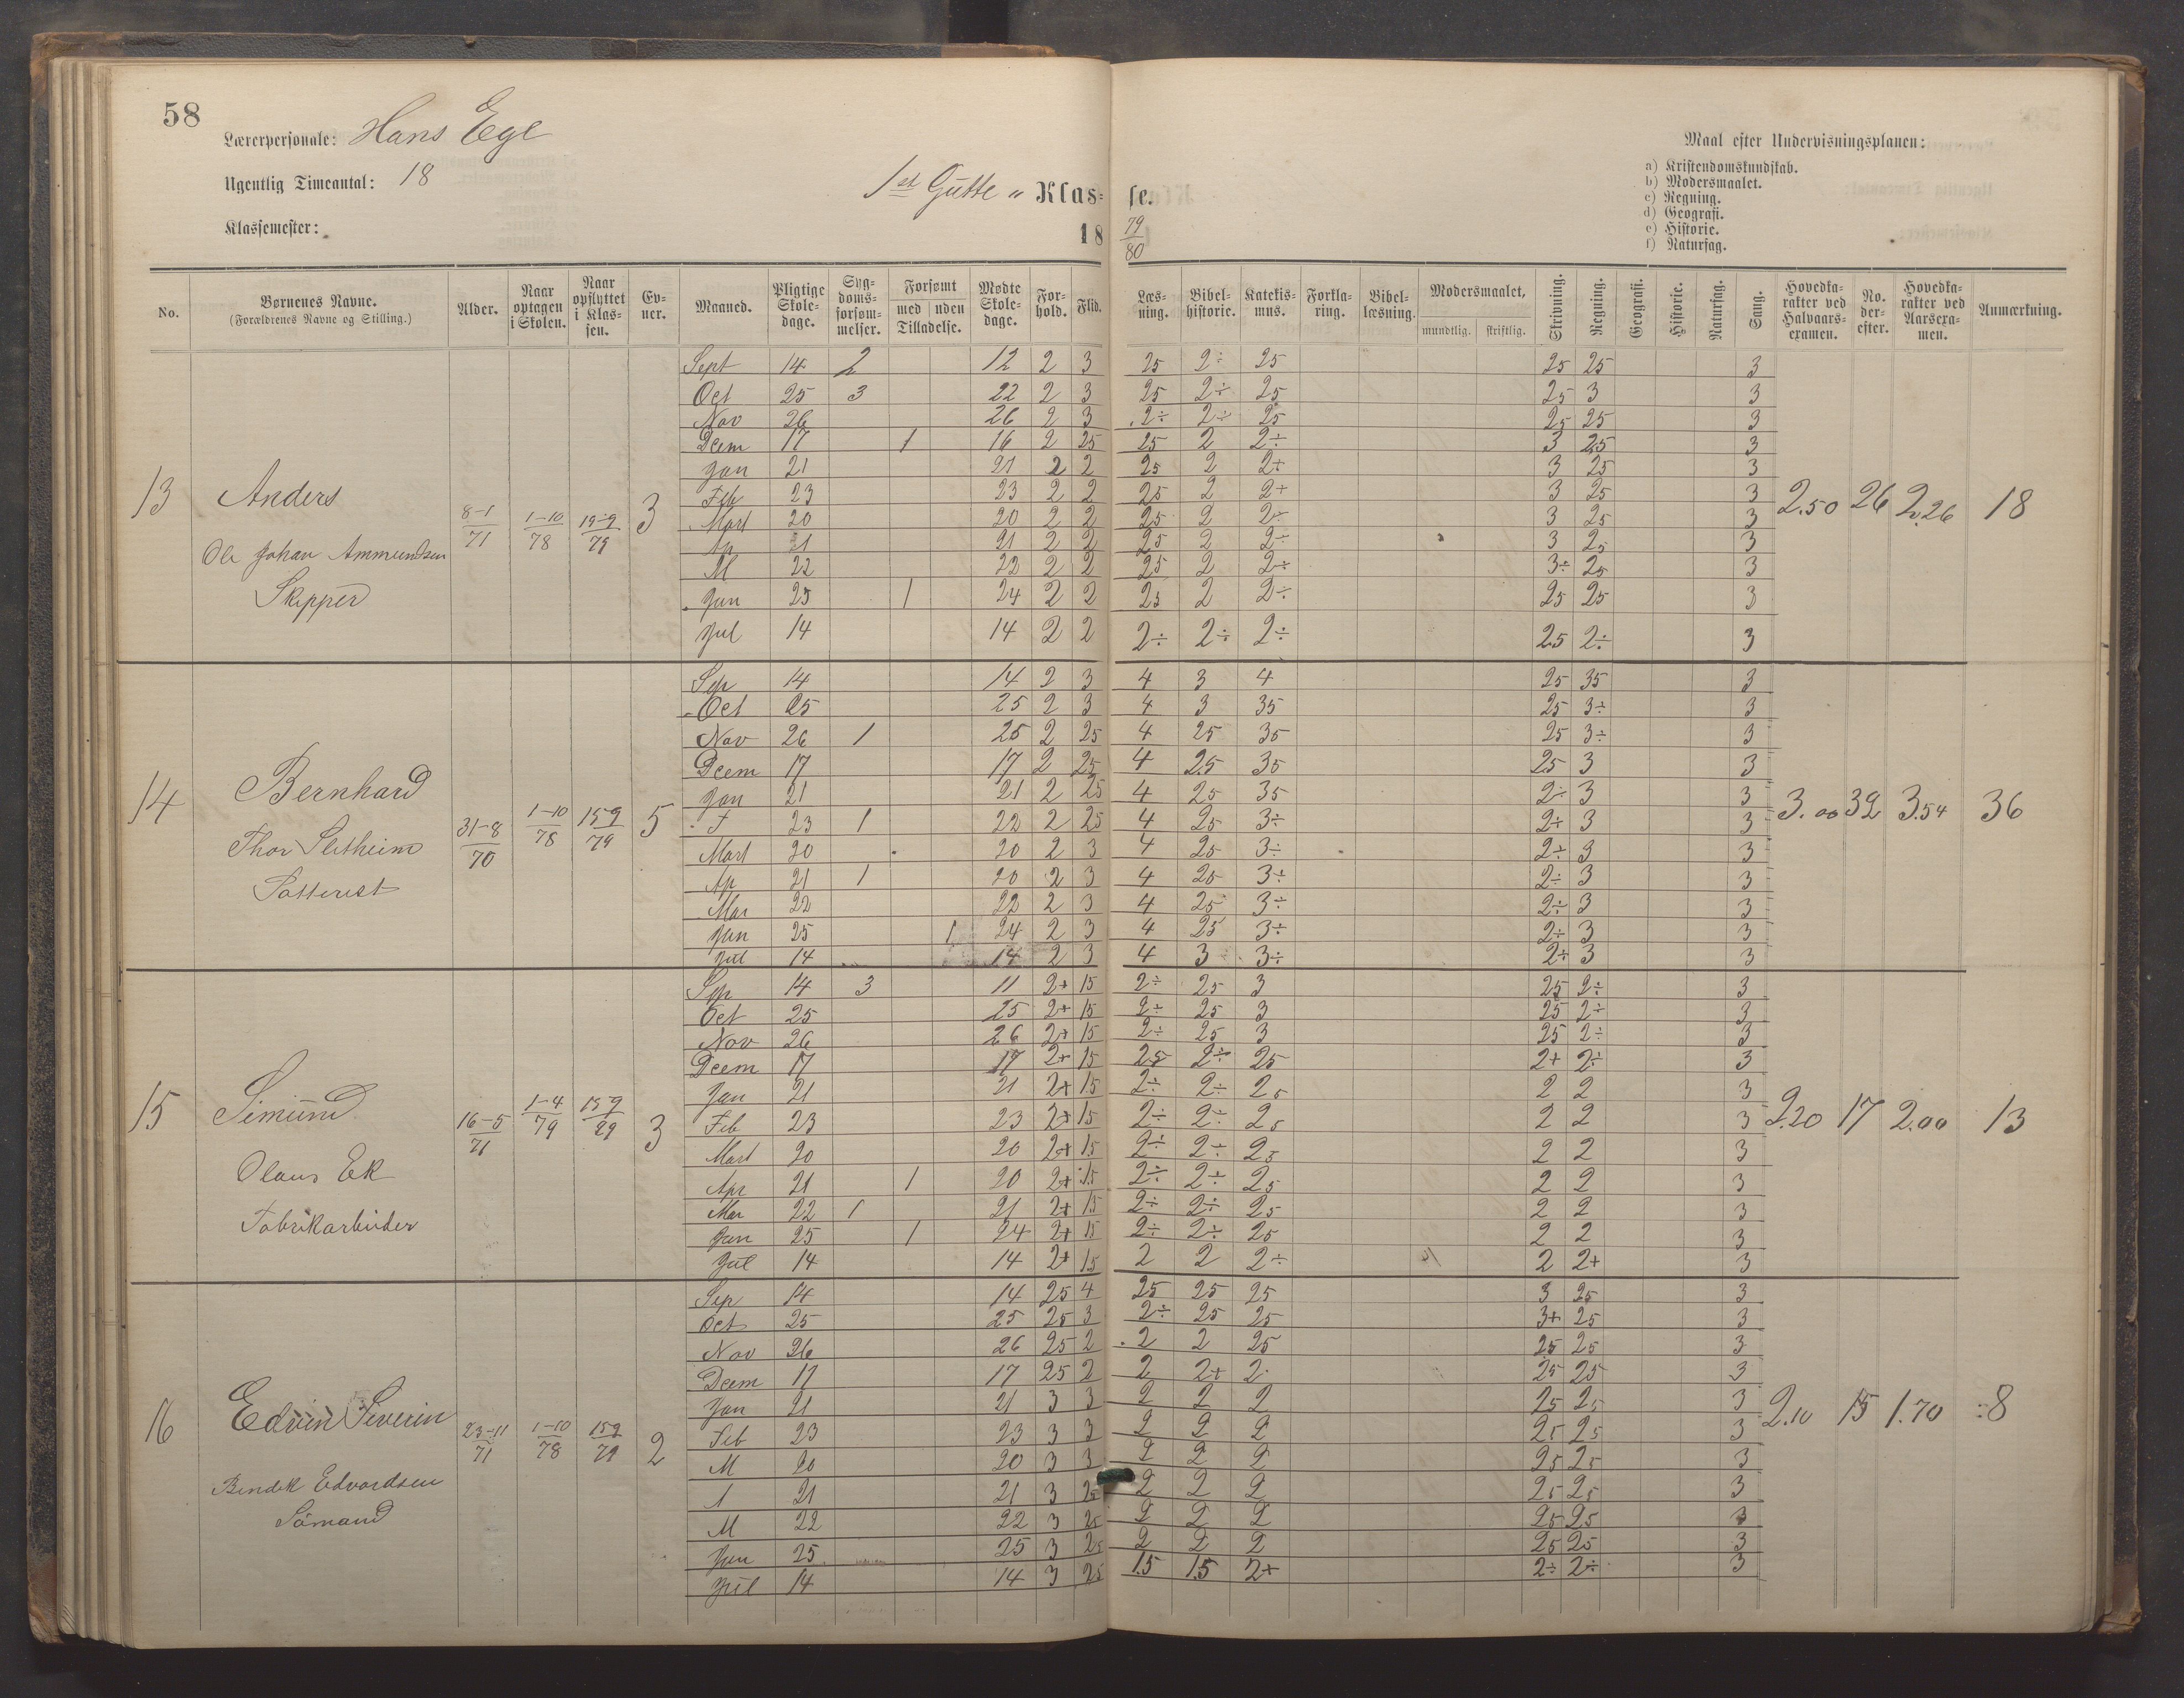 58
Lærerpersonale: Hans Ege
Ugentlig Timeantal: 18
Klassemester:
1st Gutte " Klasse.
18 79/80
Maal efter Undervisningsplanen:
a) Kristendomskundskab.
b) Modersmaalet.
c) Regning.
d) Geografi.
e) Historie.
f) Naturfag.
No. | Børnenes Navne. (Forældrenes Navne og Stilling.) | Alder. | Naar optagen i Skolen. | Naar opflyttet i Klassen. | Evner. | Maaned. | Pligtige Skoledage. | Sygdomsforsømmelser. | Forsømt med uden Tilladelse. | Mødte Skoledage. | Forhold. | Flid. | Læsning. | Bibelhistorie. | Katekismus. | Forklaring. | Bibellæsning. | Modersmaalet, mundtlig. skriftlig. | Skrivning. | Regning. | Geografi. | Historie. | Naturfag. | Sang. | Hovedkarakter ved Halvaarsexamen. | No. derefter. | Hovedkarakter ved Aarsexamen. | Anmærkning.
13 Anders
Ole Johan Ammundsen
Skipper
8-1/71 1-10/78 15-9/79 3
Sept 14 2 12 2 3 25 2÷ 25 25 25 3
Oct 25 3 22 2 3 25 2÷ 25 25 3 3
Nov 26 26 2 3 2÷ 2÷ 25 25 25 3
Decm 17 1 16 2 25 25 2 2÷ 3 25 3
Jan 21 21 2 2 25 2 2+ 3 25 3
Feb 23 23 2 2 25 2 2+ 3 25 3
Mart 20 20 2 2 25 2 2÷ 3 25 3
Ap 21 21 2 2 25 2 2÷ 3 25 3
M 22 22 2 2 25 2 2÷ 3÷ 25 3
Jun 25 1 24 2 2 25 2 2÷ 25 25 3
Jul 14 14 2 2 2÷ 2÷ 2÷ 25 2÷ 3
2.50 26 2.26 18
14 Bernhard
Thor Sletheim
31-8/70 1-10/78 15-9/79 5
Sep 14 14 2 3 4 3 4 25 35 3
Oct 25 25 2 3 4 3 35 25 3÷ 3
Nov 26 1 25 2 25 4 25 35 25 3÷ 3
Decm 17 17 2 25 4 25 35 25 3 3
Jan 21 21 2 25 4 25 35 2÷ 3 3
F 23 1 22 2 25 4 25 3÷ 2÷ 3 3
Mart 20 20 2 3 4 25 3÷ 2÷ 3 3
Ap 21 1 20 2 3 4 25 3÷ 2÷ 3 3
Mai 22 22 2 3 4 25 3÷ 2÷ 3 3
Jun 25 1 24 2 3 4 25 3÷ 2÷ 3 3
Jul 14 14 2 3 4 3 3÷ 2÷ 3 3
3.00 32 3.54 36
15 Simund
Olaus Ek
Fabrikarbeider
16-5/71 1-4/79 15-9/79 3
Sep 14 3 11 2+ 15 2÷ 25 3 25 2÷ 3
Oct 25 25 2+ 15 2÷ 25 3 25 2÷ 3
Nov 26 26 2+ 15 2÷ 25 3 25 2÷ 3
Decm 17 17 2+ 15 25 2÷ 25 2+ 2÷ 3
Jan 21 21 2+ 15 2÷ 2÷ 25 2 2 3
Feb 23 23 2+ 15 2÷ 2÷ 25 2 2 3
Mart 20 20 2+ 15 2÷ 2÷ 25 2 2 3
Apr 21 1 20 2+ 15 2÷ 2÷ 25 2 2 3
Mai 22 1 21 2+ 15 2÷ 2÷ 25 2 2 3
Jun 25 1 24 2+ 15 2÷ 2÷ 25 2 2 3
Jul 14 14 2+ 15 2 2 2÷ 2 2+ 3
2.20 17 2.00 13
16 Edvin Siverin
Bendik Edvardsen
Sömand
23-11/71 1-10/78 15-9/79 2
Sep 14 14 25 4 25 25 25 3 25 3
Oct 25 25 25 3 2÷ 25 25 3+ 25 3
Nov 26 26 25 2 2 2 25 25 25 3
Decm 17 17 25 2 2 2+ 2 25 25 3
Jan 21 21 3 3 2 2 2 25 25 3
Feb 23 23 3 3 2 2 2 25 25 3
M 20 20 3 3 2 2 2 25 25 3
A 21 21 3 25 2 2 2 25 25 3
M 22 22 3 25 2 2 2 25 25 3
Jun 25 25 3 25 2 2 2 25 25 3
Jul 14 14 3 25 15 15 2+ 2÷ 2÷ 3
2.10 15 1.70 8